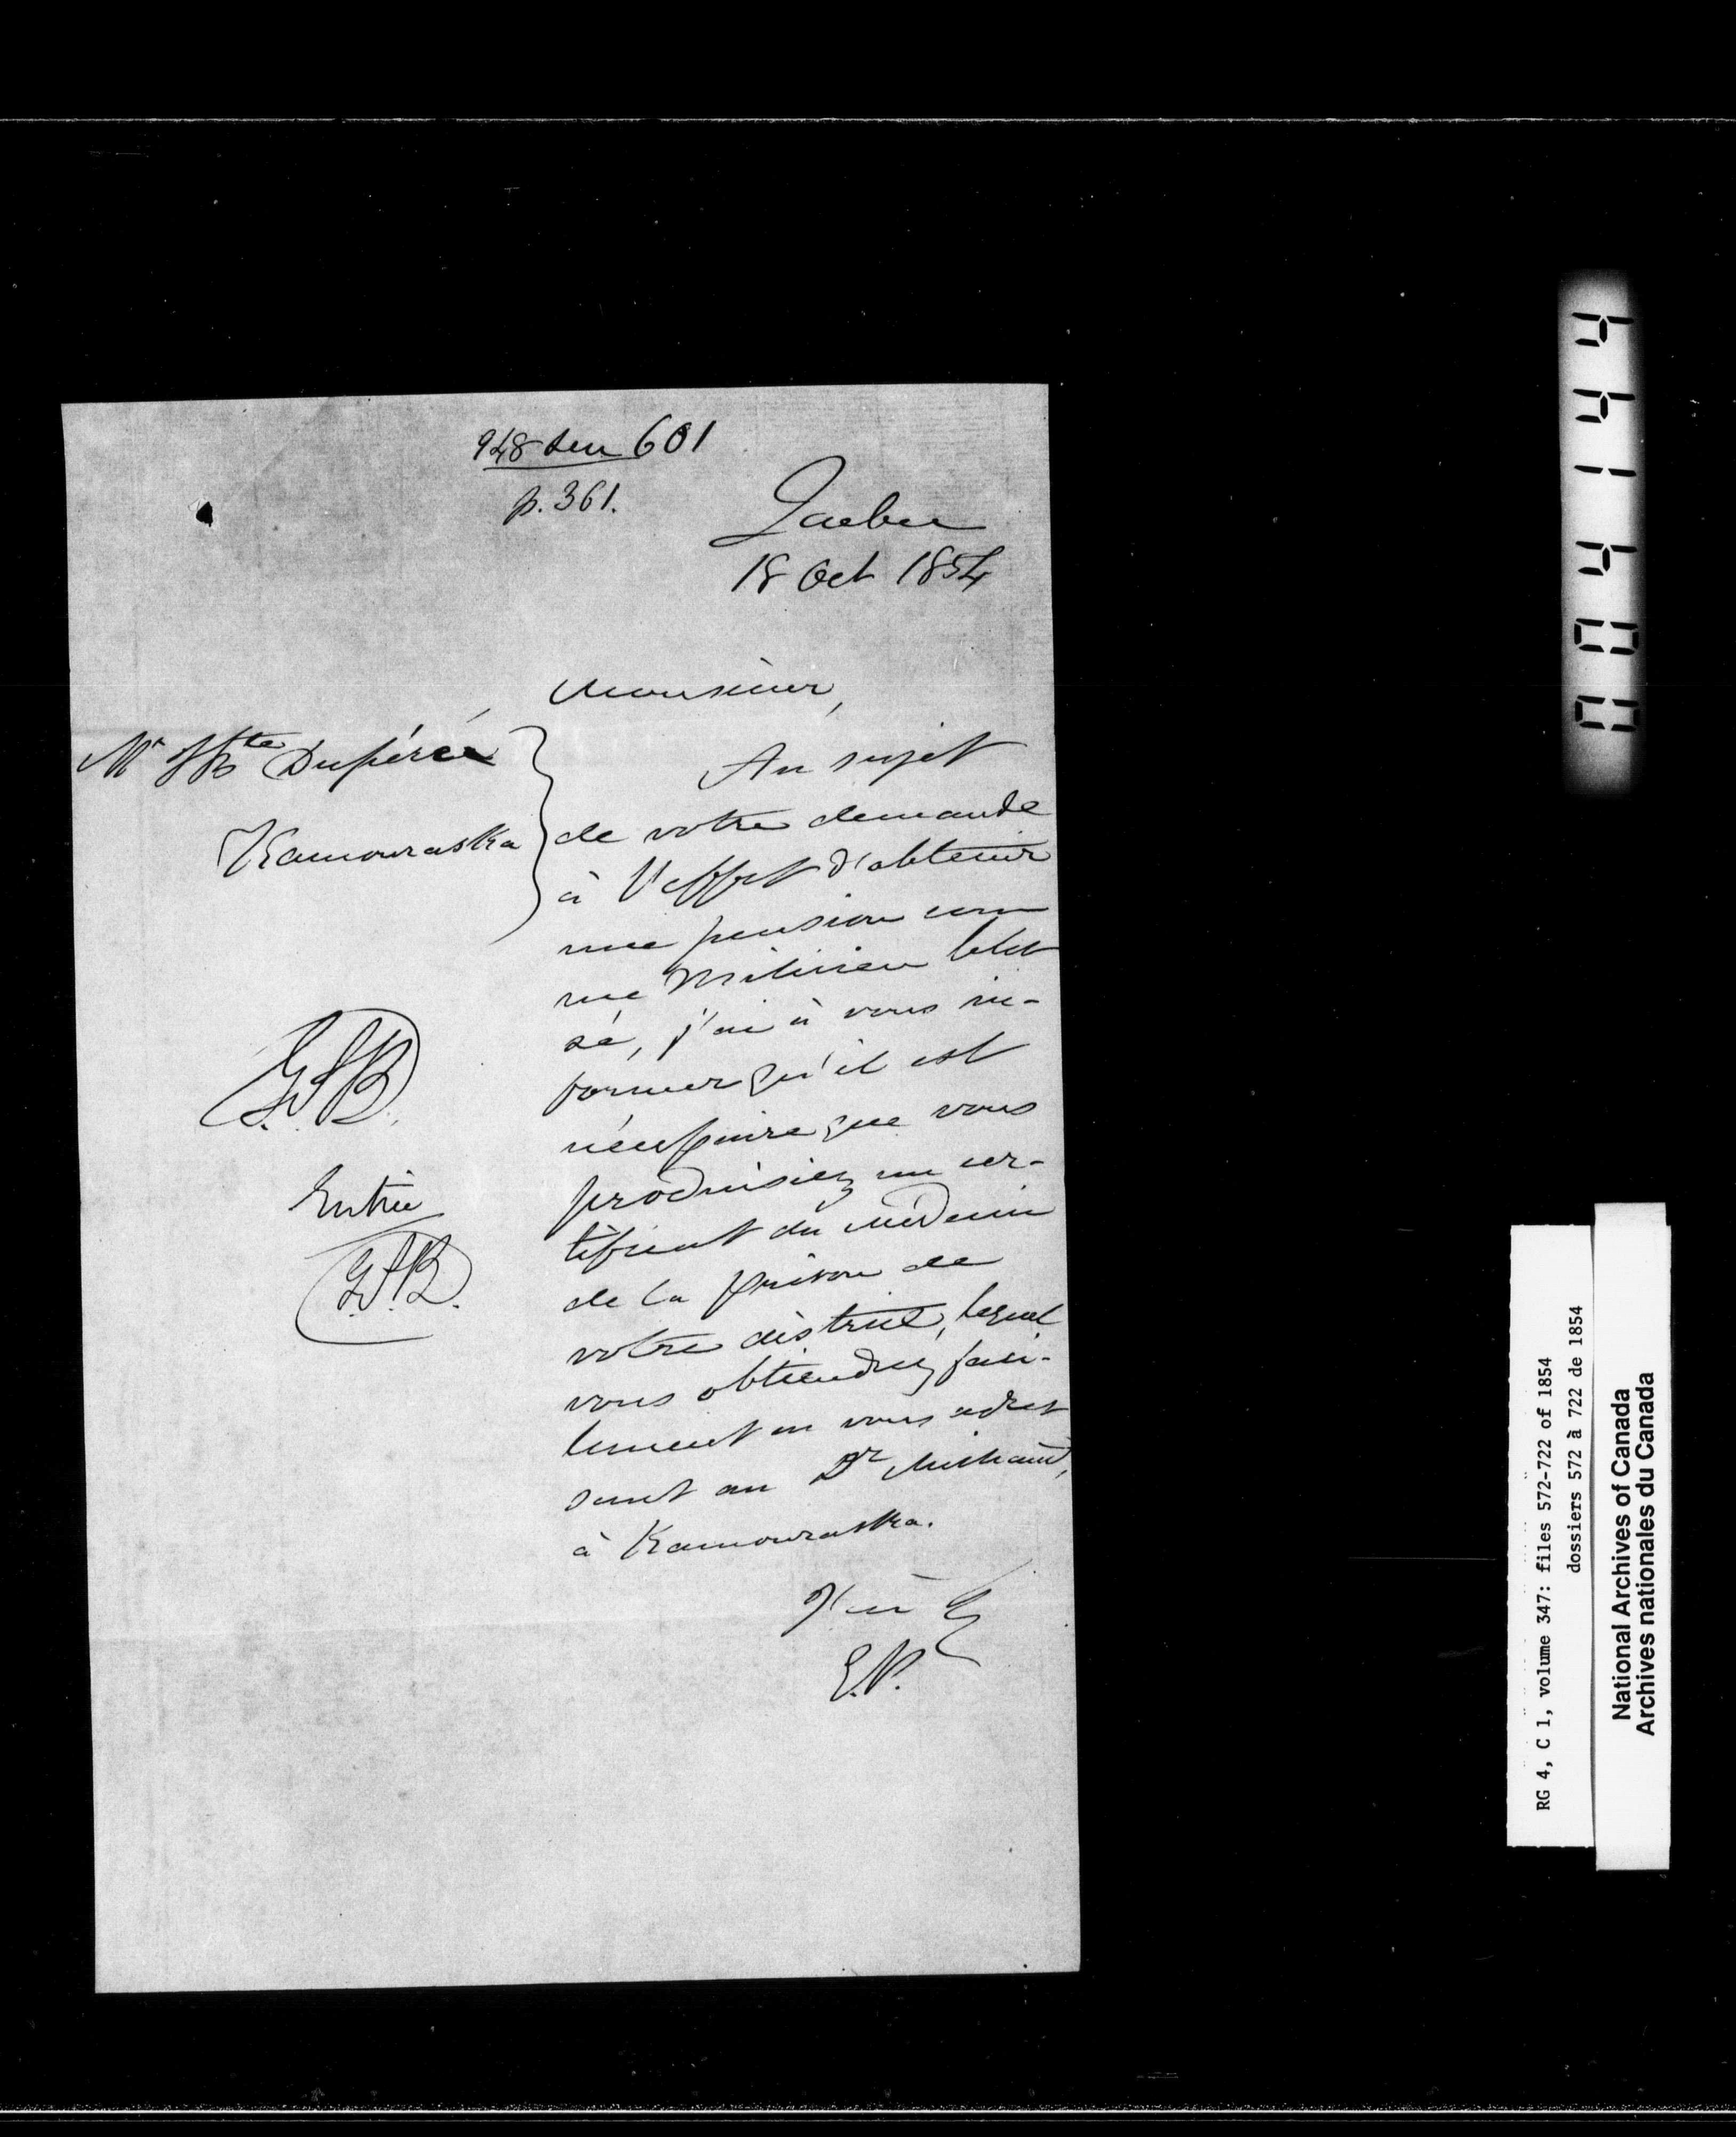 948 sur 601
p. 361.
Quebec
18 Oct 1854
Monsieur,
Mr J Bte Dupéré
Kamouraska
Au sujet
de votre demande
à l'effet d'obtenir
une pension com
me Milicien bles
sé, j'ai à vous in-
former qu'il est
nécessaire que vous
produisiez un cer-
tificat du médecin
de la prison de
votre district, lequel
vous obtiendrez faci-
lement en vous adres
sant au Dr Michaud,
à Kamouraska.
J'ai &
E.P.
Entrée
RG 4, C 1, volume 347: files 572-722 of 1854
dossiers 572 à 722 de 1854
National Archives of Canada
Archives nationales du Canada